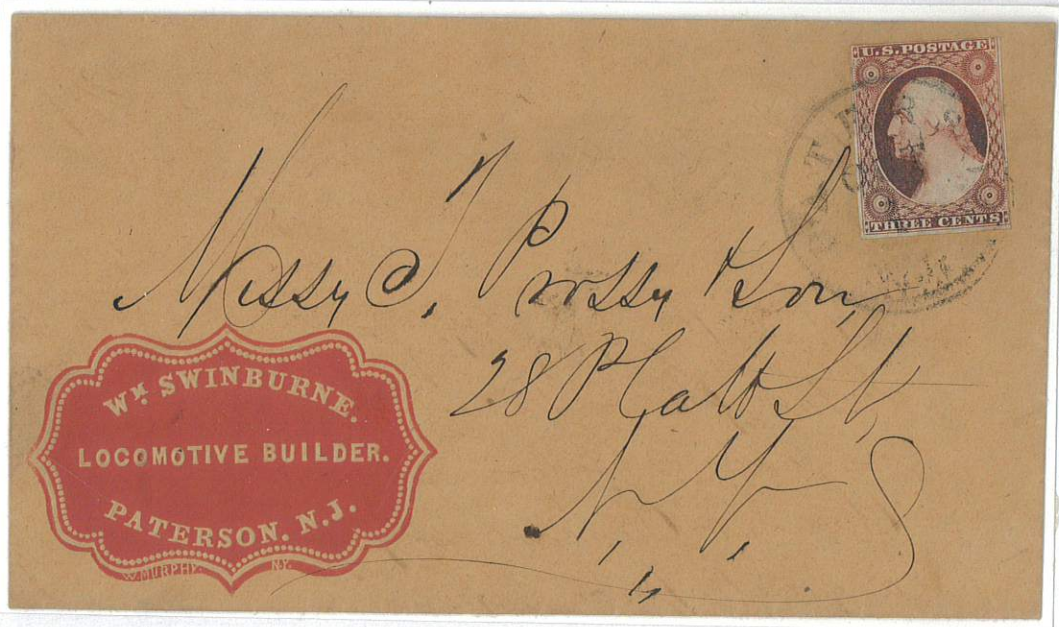 U.S. POSTAGE
THREE CENTS
Messrs J. Prosser & Son
28 Platt St
N. Y.
WM. SWINBURNE.
LOCOMOTIVE BUILDER.
PATERSON. N.J.
W. MURPHY NY.